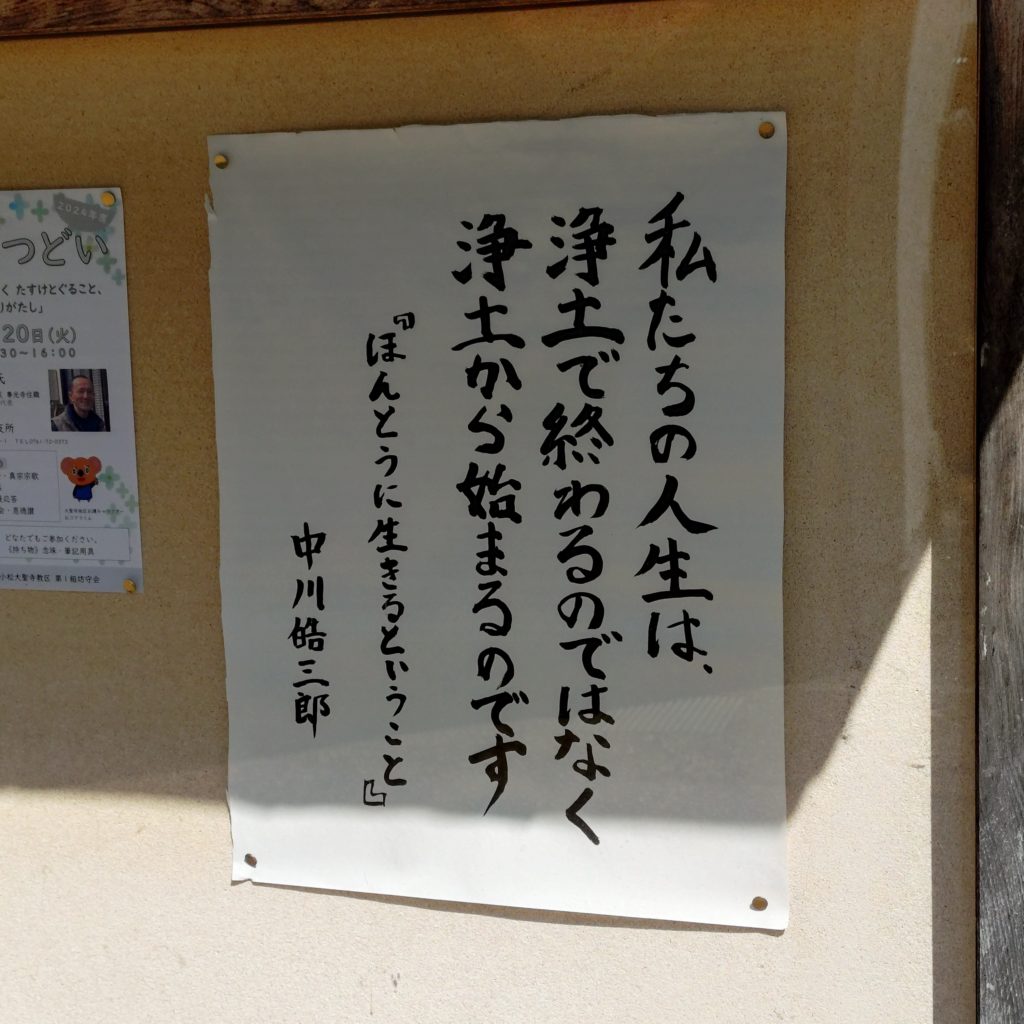 私たちの人生は、
浄土で終わるのではなく
浄土から始まるのです
『ほんとうに生きるということ』
中川皓三郎
2024年度
つどい
く たすけとぐること、
りがたし」
20日(火)
30～16:00
氏
専光寺住職
代表
支所
TEL0761-72-0372
・真宗宗歌
応答
会・恩徳讃
どなたでもご参加ください。
《持ち物》念珠・筆記用具
小松大聖寺教区 第1組坊守会